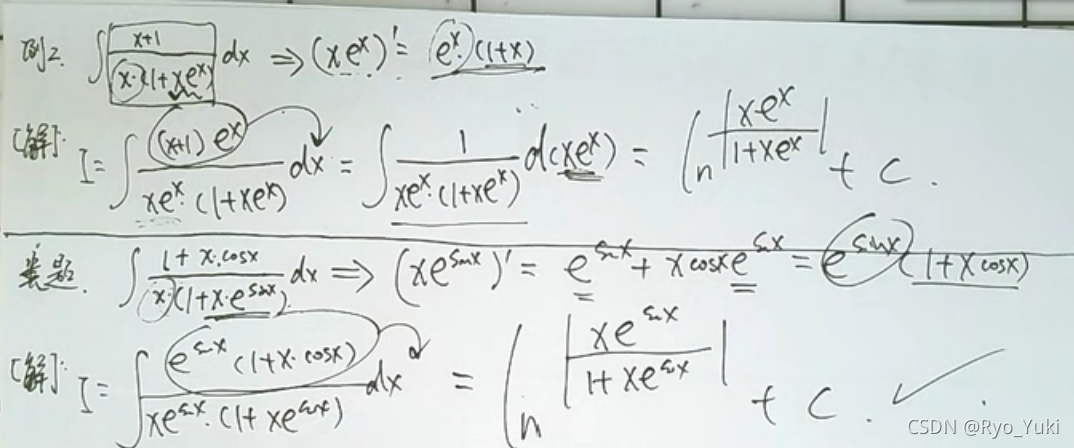 例2. ∫ (x+1)/(x·(1+xe^x)) dx ⇒ (xe^x)' = e^x·(1+x)
[解]: I = ∫ ((x+1)e^x)/(xe^x·(1+xe^x)) dx = ∫ 1/(xe^x·(1+xe^x)) d(xe^x) = ln|xe^x/(1+xe^x)| + c.
类题. ∫ (1+x·cosx)/(x·(1+x·e^sinx)) dx ⇒ (xe^sinx)' = e^sinx + xcosxe^sinx = e^sinx(1+xcosx)
[解]: I = ∫ (e^sinx(1+x·cosx))/(xe^sinx·(1+xe^sinx)) dx = ln|xe^sinx/(1+xe^sinx)| + c. ✓
CSDN @Ryo_Yuki